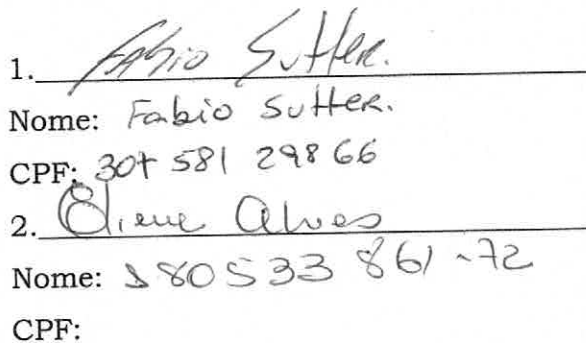 1. Fabio Sutter.
Nome: Fabio Sutter.
CPF: 307 581 298 66
2. Eliene Alves
Nome: 180533 861-72
CPF: